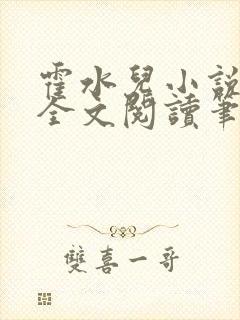 霍水兒小說
全文閱讀筆
雙喜一哥